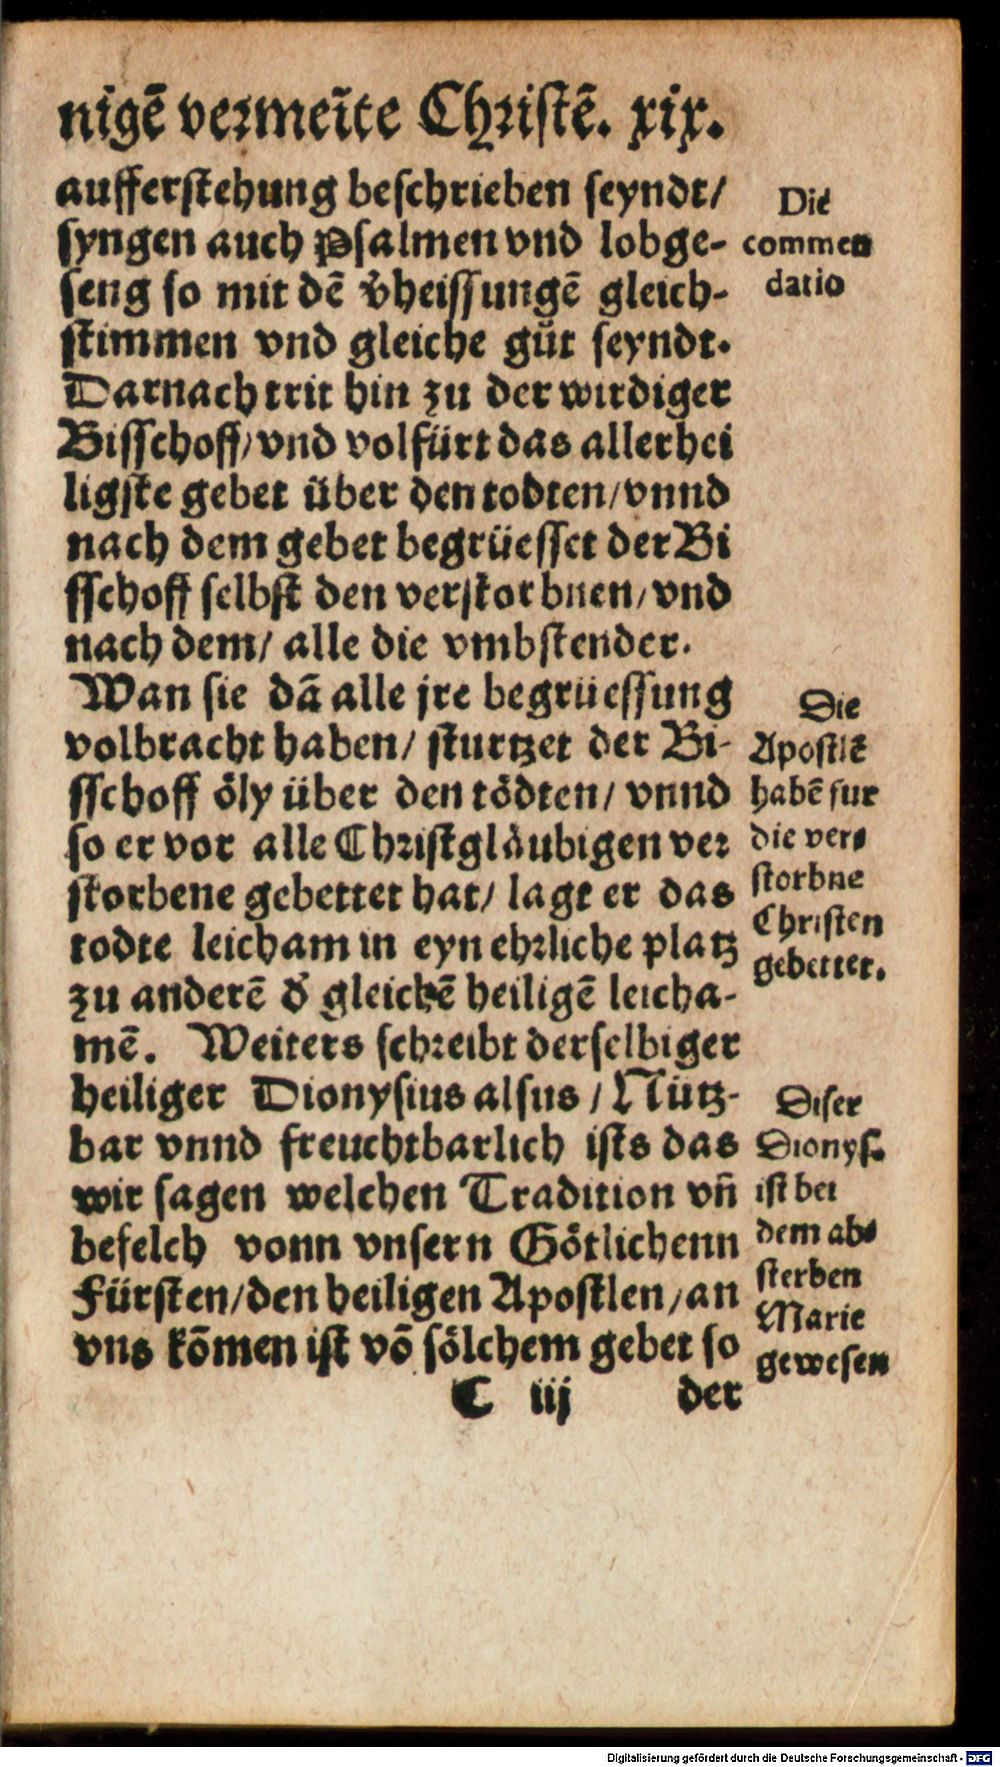 nigē vermeīte Chꝛistē. xix.
aufferstehung beschrieben seyndt/
syngen auch Psalmen vnd lobge-
seng so mit dē v̄heissungē gleich-
stimmen vnd gleiche gůt seyndt.
Darnach trit hin zu der wirdiger
Bisschoff/vnd volfürt das allerhei
ligste gebet über den todten/vnnd
nach dem gebet begrüesset der Bi
sschoff selbst den verstorbnen/vnd
nach dem/ alle die vmbstender.
Wan sie dā alle jre begrüessung
volbracht haben/ sturtzet der Bi-
sschoff öly über den tödten/ vnnd
so er vor alle Chꝛistgläubigen veꝛ
storbene gebettet hat/ lagt er das
todte leicham in eyn ehꝛliche platz
zu anderē d̄ gleichē heiligē leicha-
mē. Weiters schꝛeibt derselbiger
heiliger Dionysius alsus/Nütz-
bar vnnd freuchtbarlich ists das
wir sagen welchen Tradition vn̄
befelch vonn vnsern Götlichenn
Fürsten/den heiligen Apostlen/an
vns kōmen ist vō sölchem gebet so
C iij der
Die
commen
datio
Die
Apostlē
habē fur
die ver-
storbne
Christen
gebettet.
Diser
Dionys.
ist bei
dem ab-
sterben
Marie
gewesen
Digitalisierung gefördert durch die Deutsche Forschungsgemeinschaft - DFG